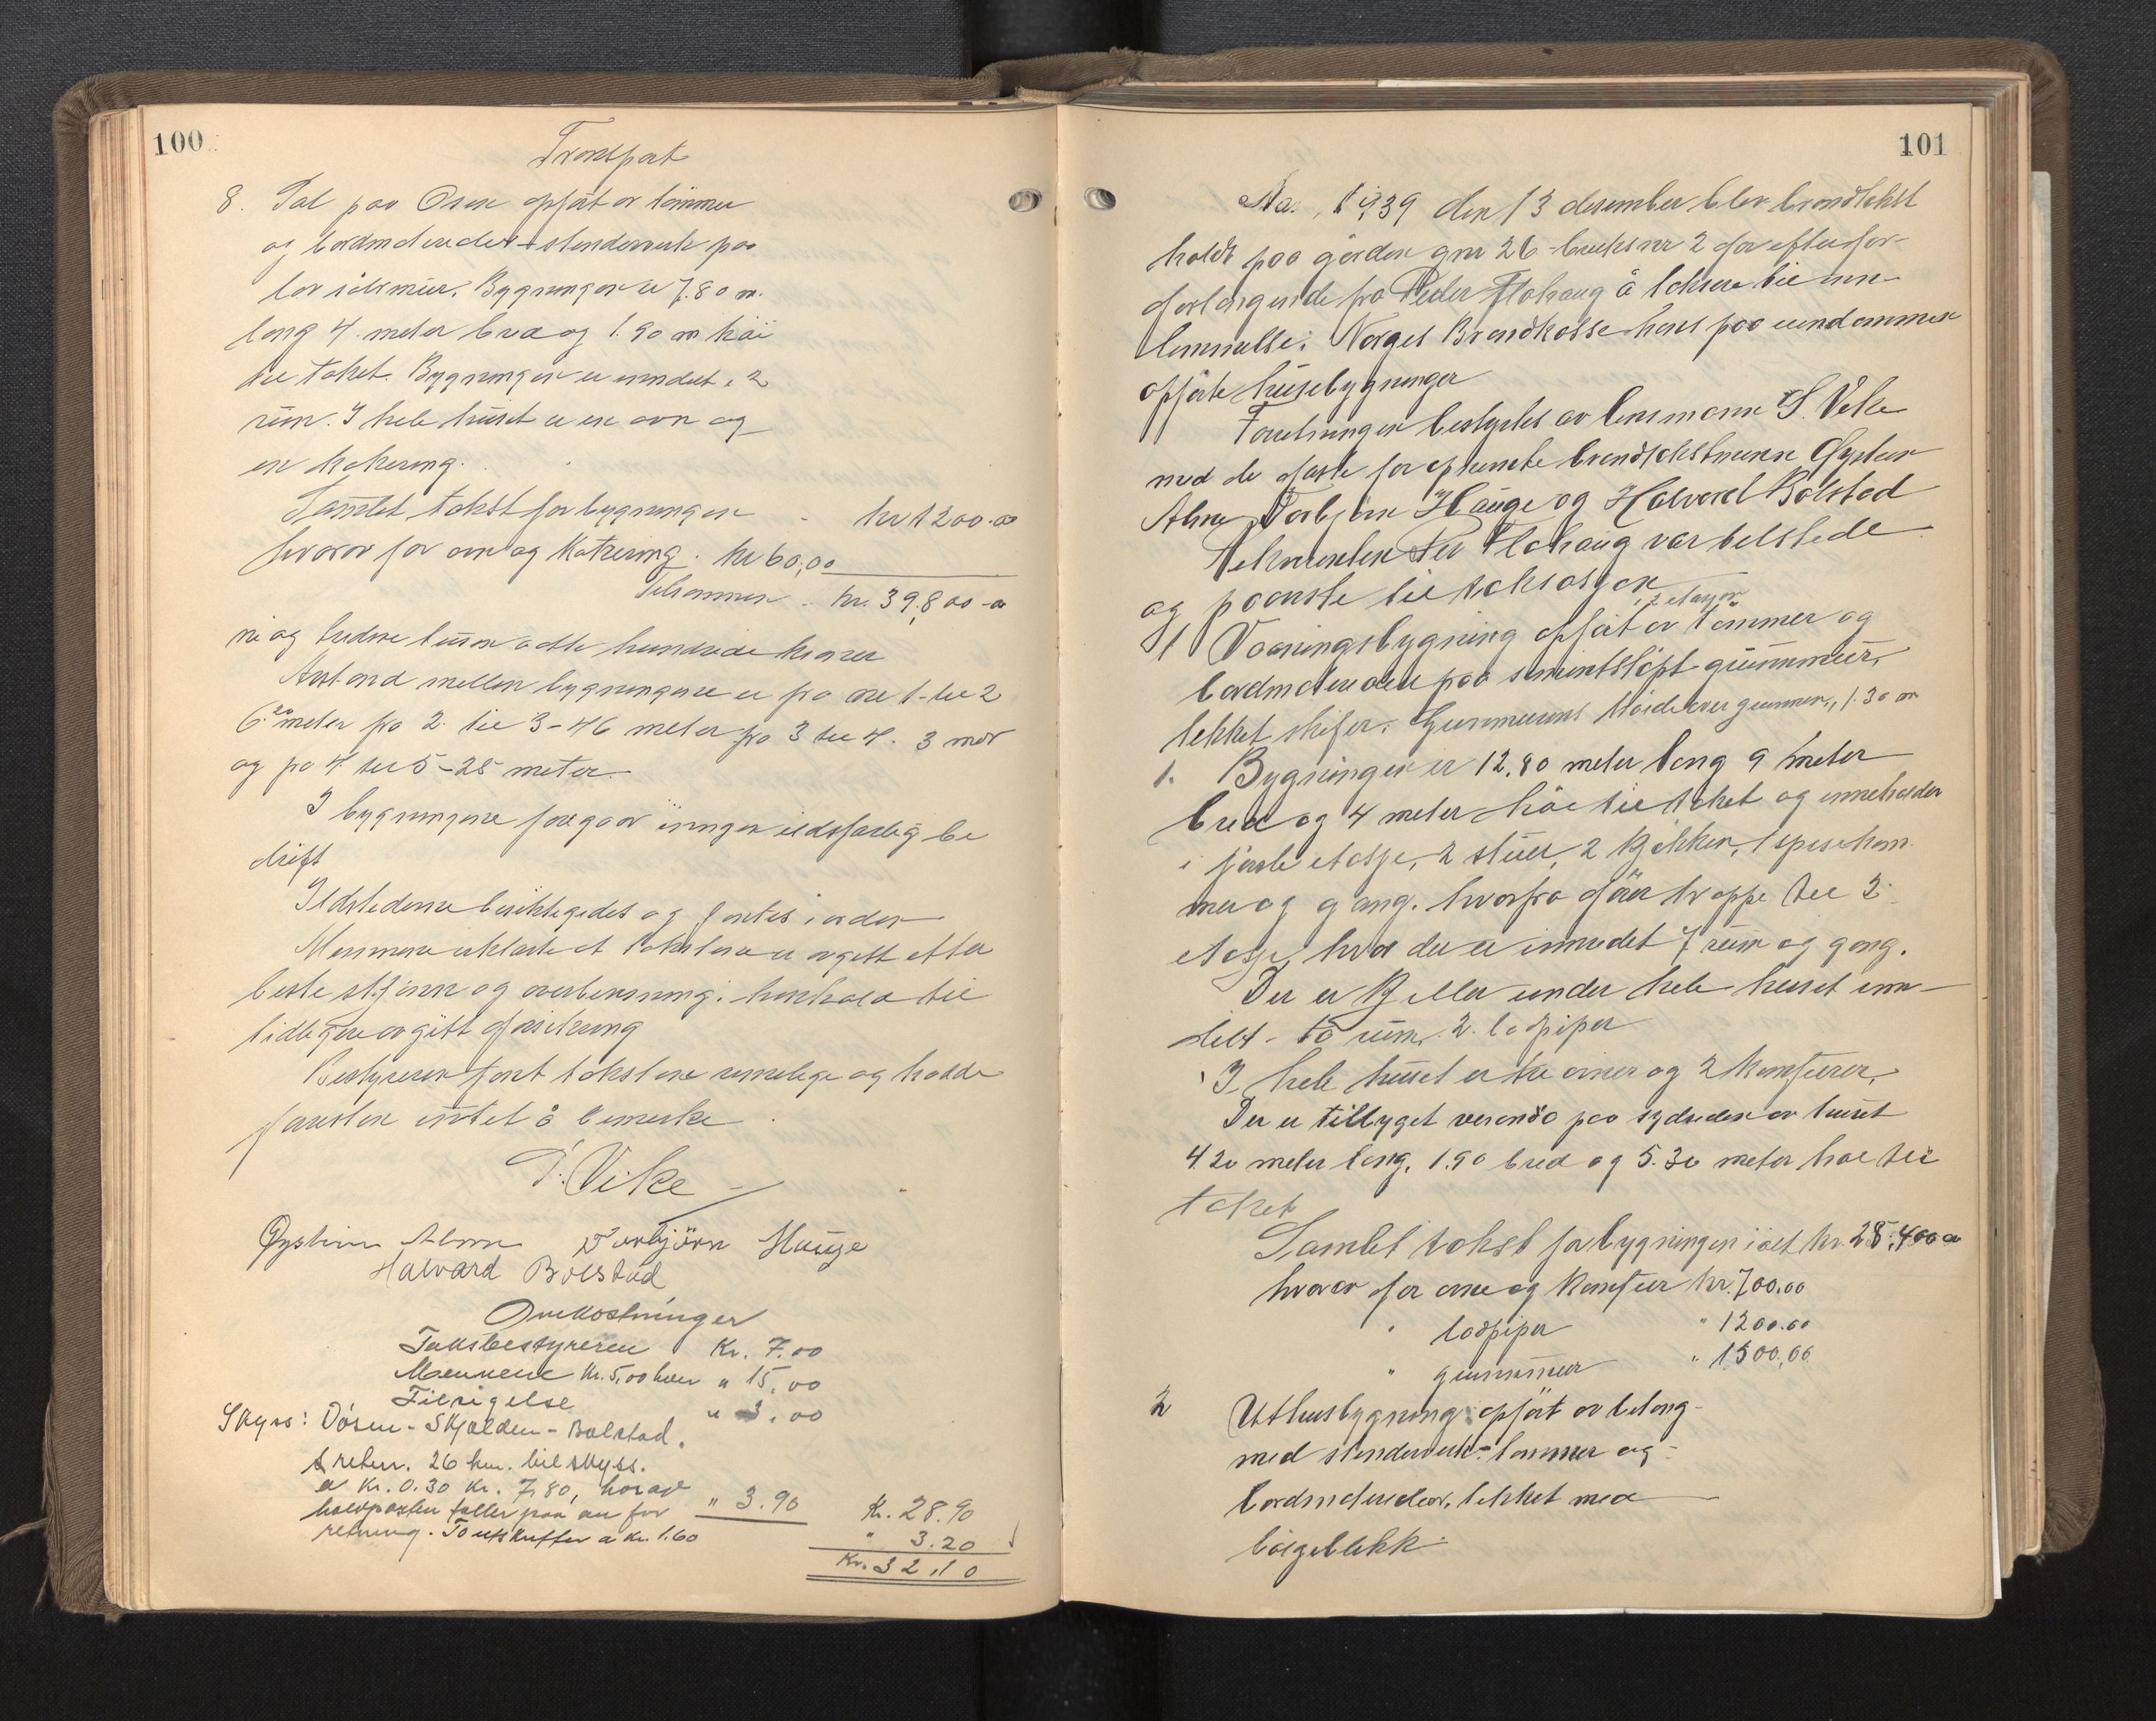 100
Transport
8. Sel paa Osen opfört av tömmer
og bordmdeirede stenderverk paa
lav muur. Bygningen er 7.80 m.
lang 4 meter bred og 1.90 m höi
til taket. Bygningen er inndelt i 2
rüm. I hele huset er en ovn og
en kokering.
Samlet takst for bygningen kr 1200.00
hvorav for ovn og Kokering. kr 60,00
Tilsammen kr. 39,800-00
ni og tredve tusen otte hundrede kroner
Avstand mellem bygningene er fra nr 1 til 2
6.20 meter fra 2 til 3-46 meter fra 3 til 4. 3 meter
og fra 4 til 5-25 meter
I bygningene foregaar ingen ildsfarlig be
drift
Ildstedene besiktigedes og fantes i orden
Mennene erklærte at takstene er avgitt efter
beste skjönn og overbevisning i henhold til
tidligere avgitt forsikring
Bestyreren fant takstene rimelige og hadde
forøvrig intet å bemerke
S. Vike
Øystein Alme Torbjörn Hauge
Halvard Bolstad
Omkostninger
Takstbestyreren Kr. 7.00
Mennene Kr. 5,00 hver " 15,00
Tilsigelse " 3.00
Skyss: Døsen-Skjolden-Bolstad.
& retur. 26 km. bilskyss.
a Kr. 0.30 Kr. 7,80, hvorav
halvparten faller paa en for " 3.90 Kr. 28.90
retning. To utskrifter a kr. 1.60 " 3.20
Kr. 32,10
101
Aar 1939 den 13 desember blev brandtakst
holdt paa gården gnr 26 bruksnr 2 for efter for-
forlangende fra Peder Flohaug å taksere til inn
lemmelse i Norges Brandkasse hans paa eiendommen
opförte husebygninger
Forretningen bestyrtes av lensmann S. Vike
med de faste for opnevnte brandtakstmenn Øystein
Alme, Torbjörn Hauge og Halvard Bolstad
Rekvirenten Per Flohaug var tilstede
og paaviste til taksasjon
i 2 etasjer
1 Vaaningsbygning opfört av tömmer og
bordmdeirede paa sementstöpt grunnmur,
tekket skifer. Grunnmurens höide over grunnen, 1.30 m
1. Bygningen er 12,80 meter lang 9 meter
bred og 4 meter höi til taket og inneholder
i förste etasje, 2 stuer, 2 kjökken, 1 spisekam
mer og gang. hvorfra förer trappe til 2
etasje hvor der er innredet 7 rüm og gang.
Der er kjeller under hele huset inn-
delt - to rüm. 2 lodpiper
I hele huset er tre ovner og 2 komfürer,
Der er tilbyget veranda paa sydsiden av huset
4.20 meter lang, 1.90 bred og 5.30 meter höi til
taket
Samlet takst for bygningen i alt kr. 28.400 00
hvorav for ovne og komfür kr. 700.00
" lodpiper " 1200.00
" grunnmur " 1500,00
2 Uthusbygning opfört av betong
med stenderverk-tömmer og
bordmdeirede, tekket med
bölgeblikk